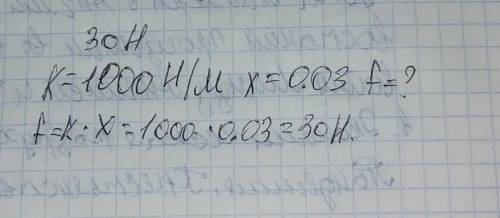 30Н
K=1000 Н/м x=0.03 f=?
f=K·X=1000·0.03=30Н.